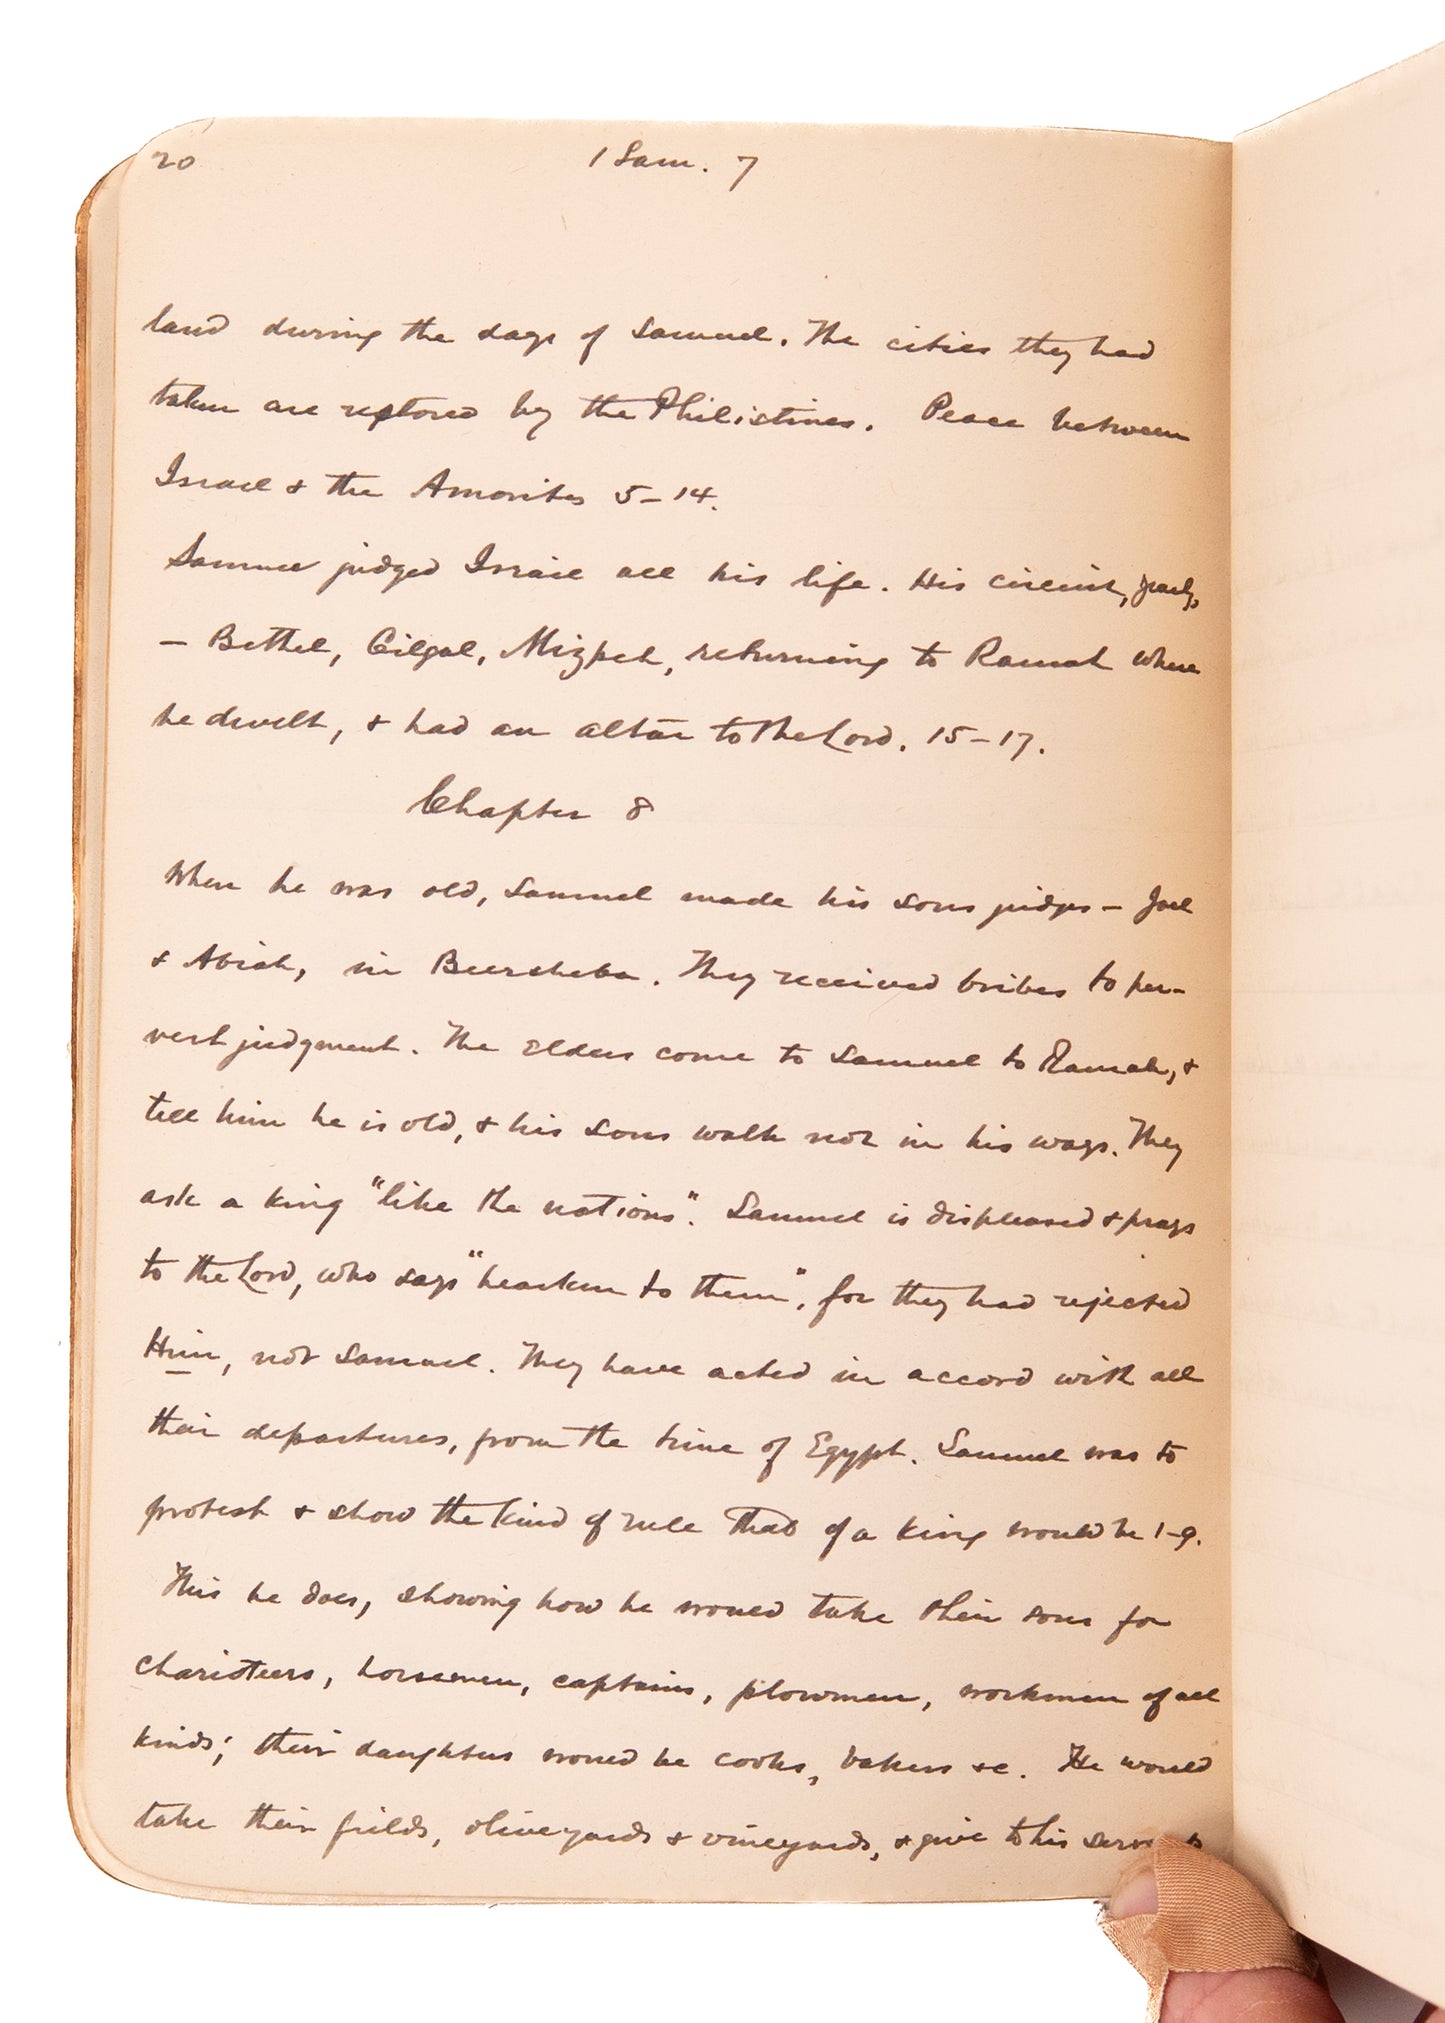 20 1 Sam. 7
land during the days of Samuel. The cities they had
taken are restored by the Philistines. Peace between
Israel & the Amorites 5-14.
Samuel judged Israel all his life. His circuit, yearly,
- Bethel, Gilgal, Mizpeh, returning to Ramah where
he dwelt, & had an altar to the Lord. 15-17.
Chapter 8
When he was old, Samuel made his sons judges - Joel
& Abiah, in Beersheba. They received bribes to per-
vert judgment. The elders come to Samuel to Ramah, &
tell him he is old, & his sons walk not in his ways. They
ask a king "like the nations". Samuel is displeased & prays
to the Lord, who says "hearken to them", for they had rejected
Him, not Samuel. They have acted in accord with all
their departures, from the time of Egypt. Samuel was to
protest & show the kind of rule that of a king would be 1-9.
This he does, showing how he would take their sons for
charioteers, horsemen, captains, plowmen, workmen of all
kinds; their daughters would be cooks, bakers &c. He would
take their fields, oliveyards & vineyards, & give to his